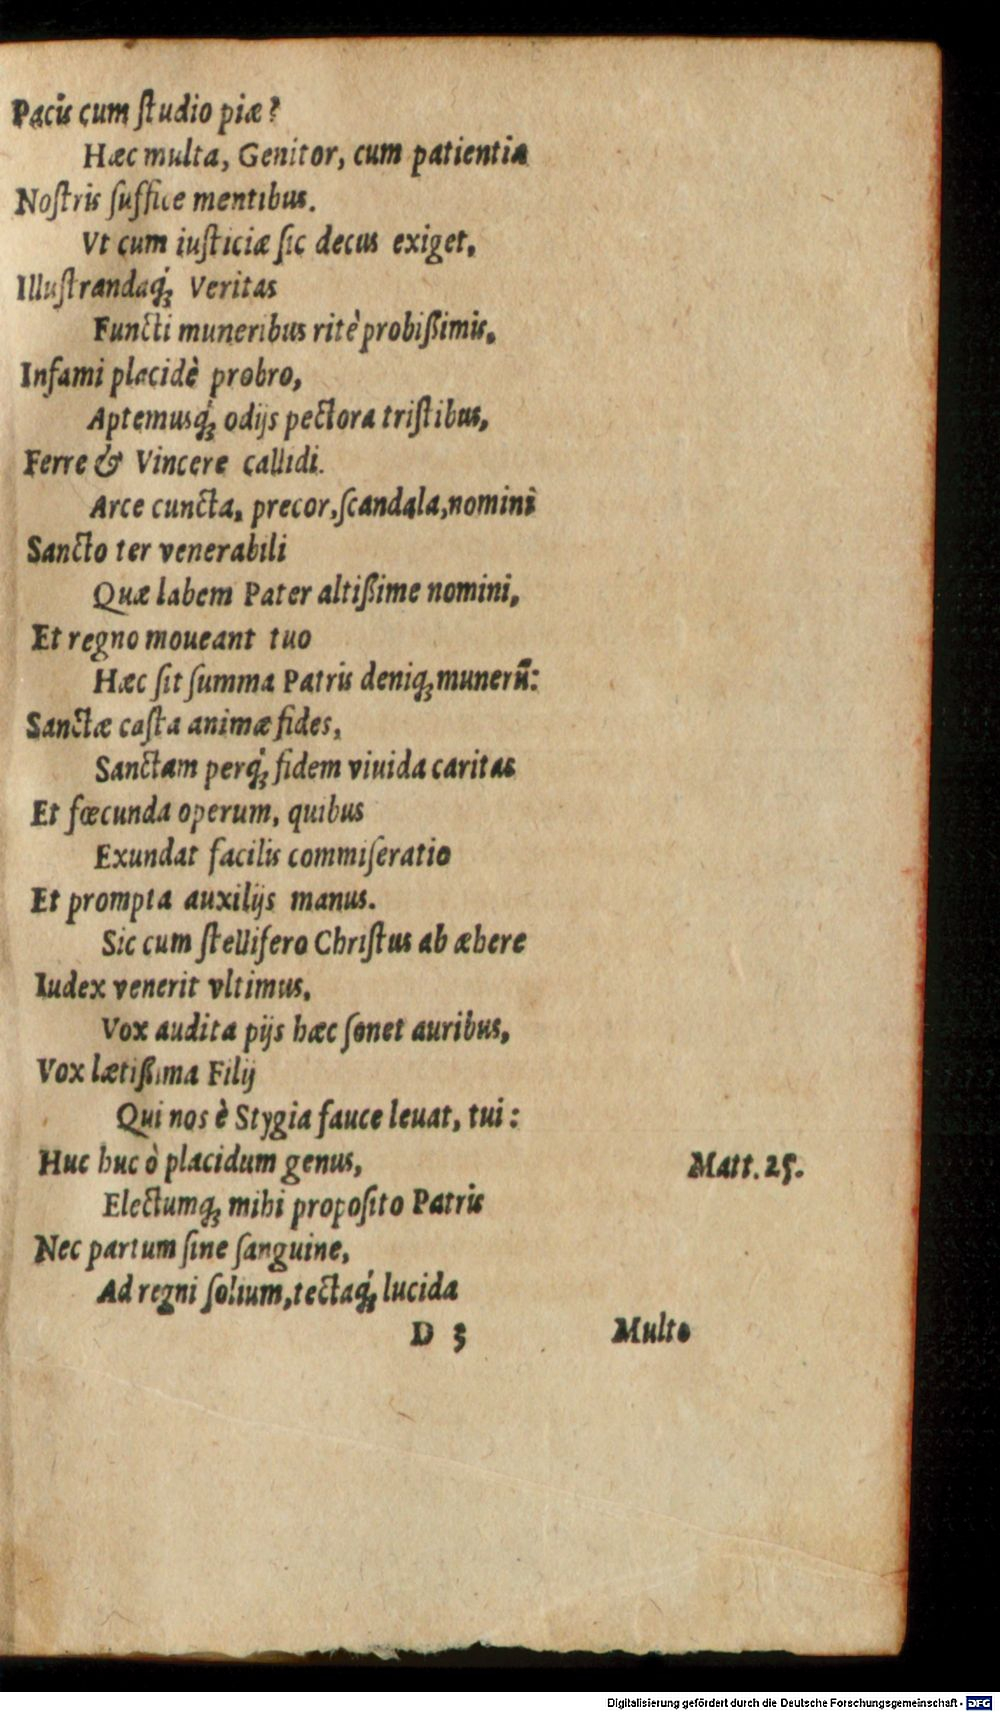 Pacis cum ſtudio piæ?
Hæc multa, Genitor, cum patientia
Noſtris ſuffice mentibus.
Vt cum iuſticiæ ſic decus exiget,
Illuſtrandaq́; Veritas
Functi muneribus ritè probißimis,
Infami placidè probro,
Aptemusq́; odijs pectora triſtibus,
Ferre & Vincere callidi.
Arce cuncta, precor, ſcandala, nomini
Sancto ter venerabili
Quæ labem Pater altißime nomini,
Et regno moueant tuo
Hæc ſit ſumma Patris deniq; munerū:
Sanctæ caſta animæ fides,
Sanctam perq́; fidem viuida caritas
Et fœcunda operum, quibus
Exundat facilis commiſeratio
Et prompta auxilijs manus.
Sic cum ſtellifero Chriſtus ab æhere
Iudex venerit vltimus,
Vox audita pijs hæc ſonet auribus,
Vox lætißima Filij
Qui nos è Stygia fauce leuat, tui:
Huc huc ò placidum genus,
Matt. 25.
Electumq; mihi propoſito Patris
Nec partum ſine ſanguine,
Ad regni ſolium, tectaq́; lucida
D 3 Multo
Digitalisierung gefördert durch die Deutsche Forschungsgemeinschaft - DFG